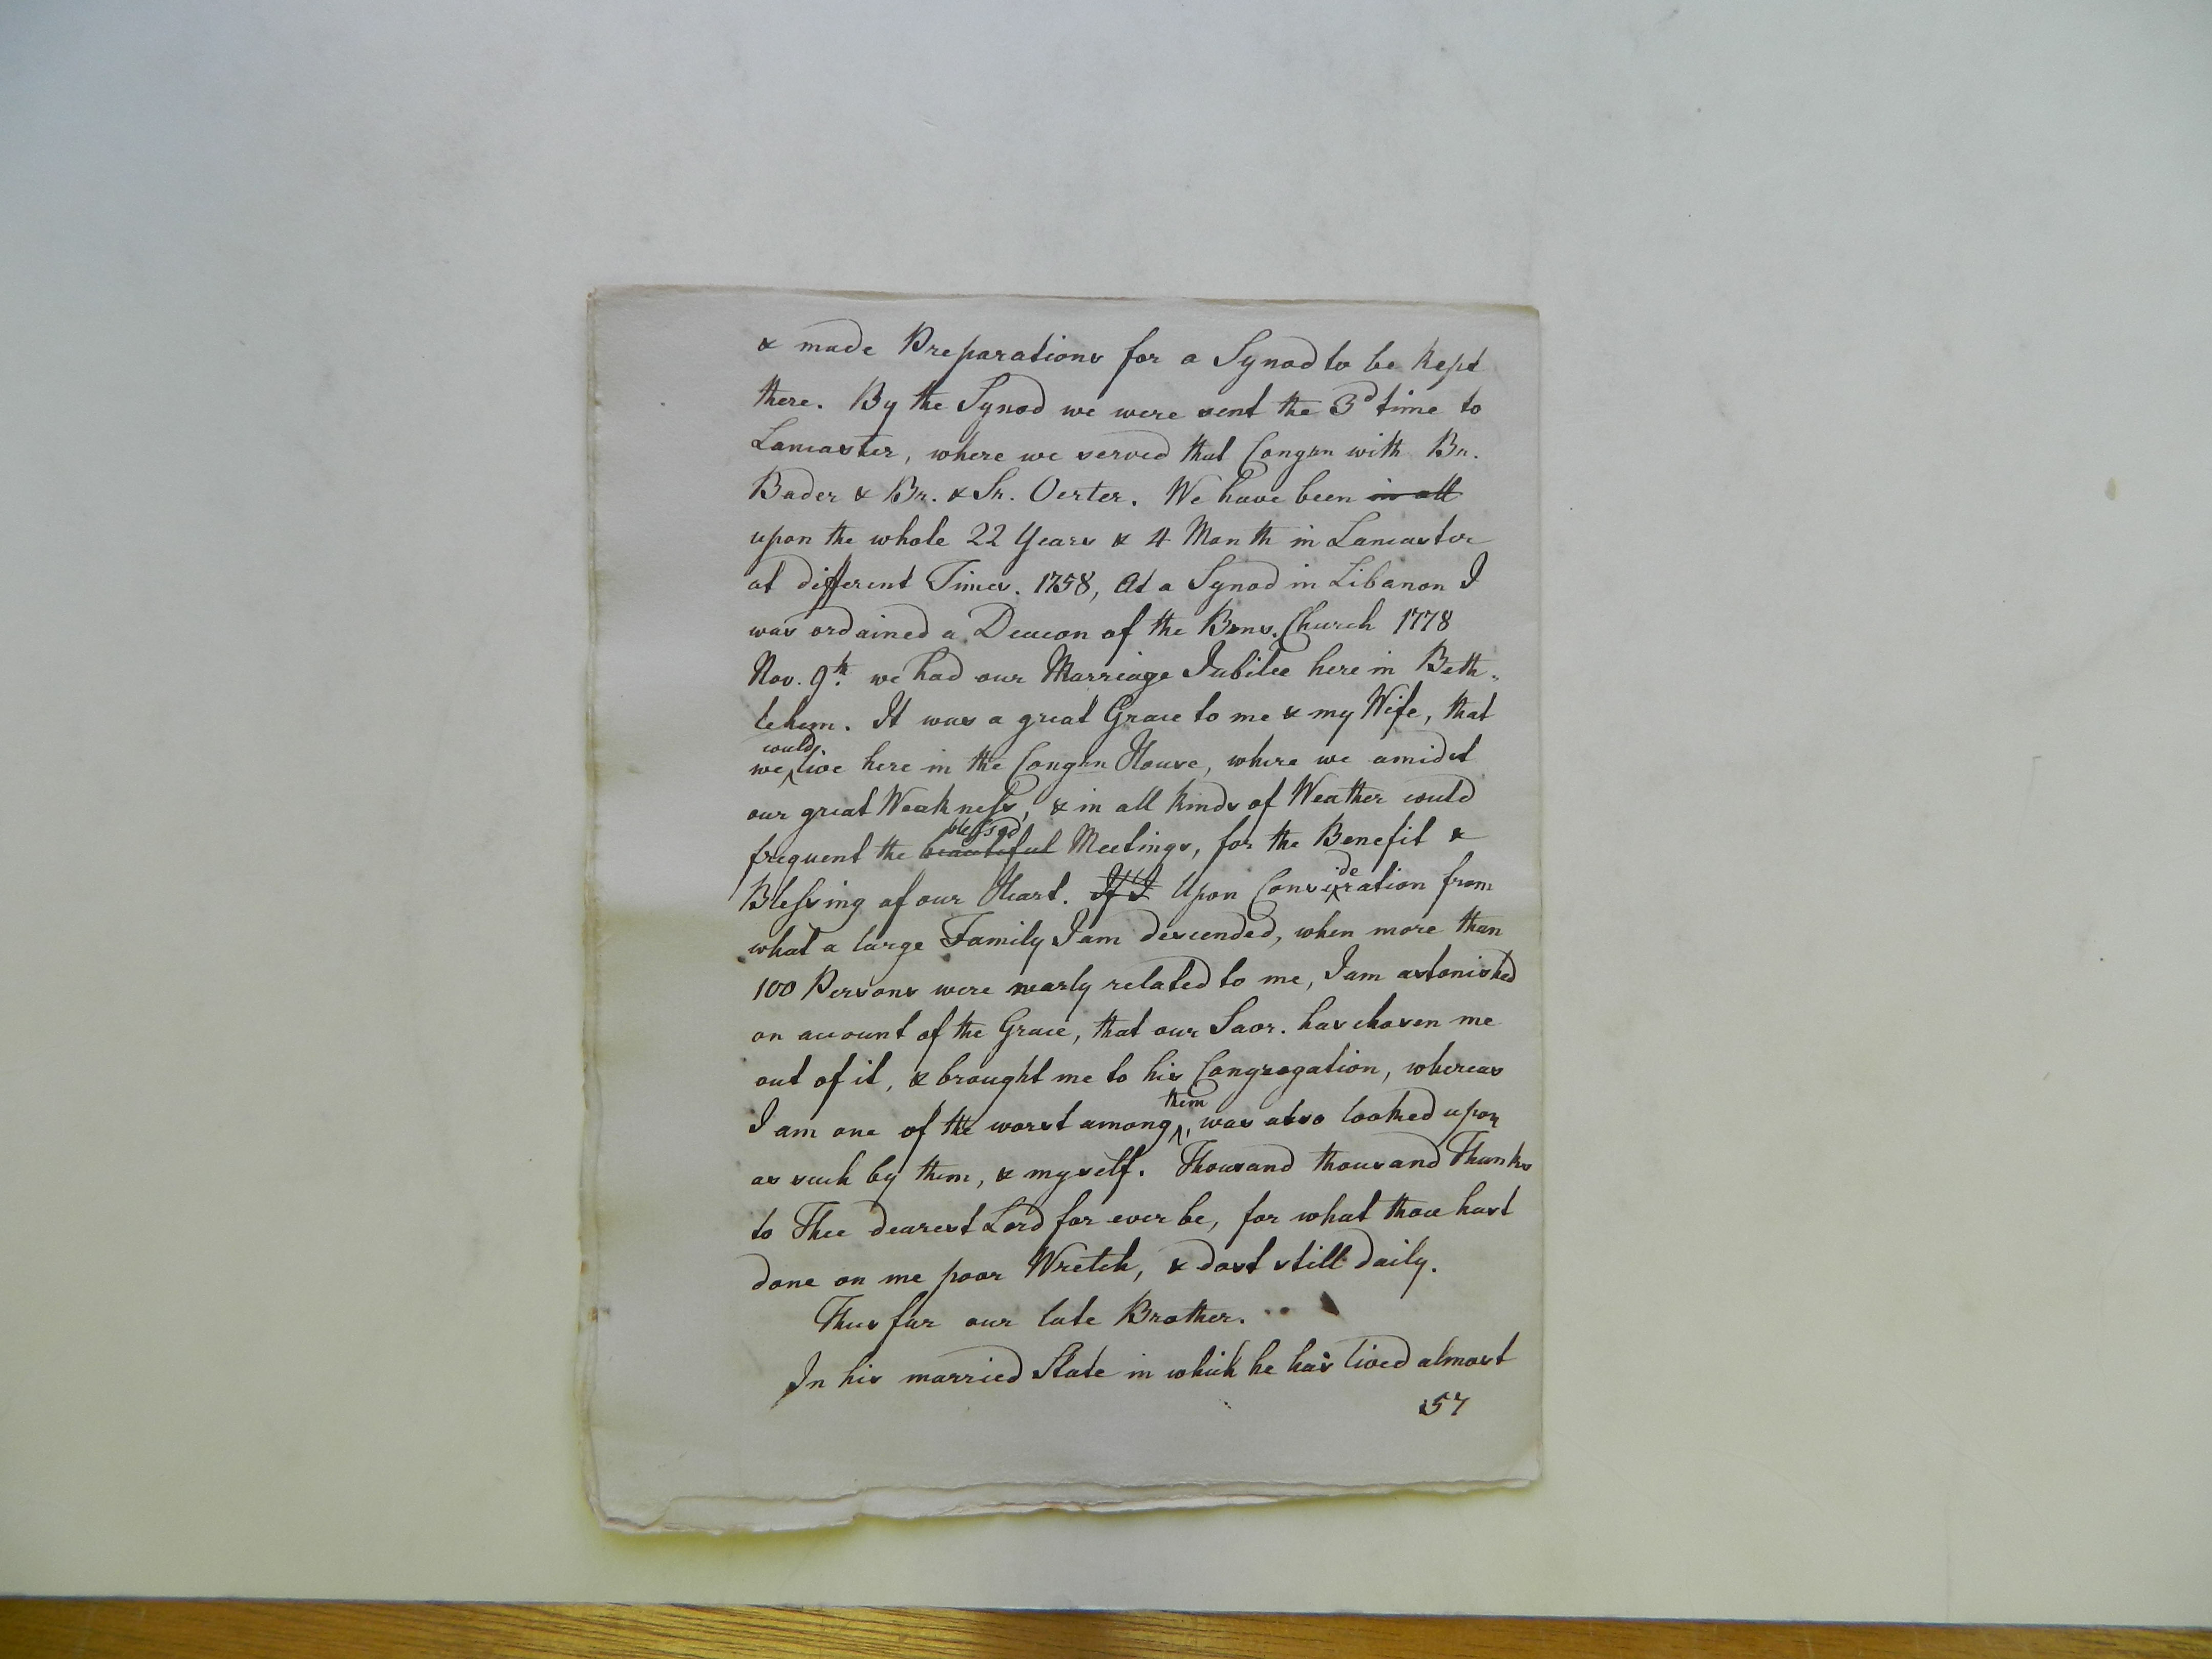 & made Preparations for a Synod to be kept
there. By the Synod we were sent the 3d time to
Lancaster, where we served that Congn with Br.
Bader & Br. & Sr. Oerter. We have been in all
upon the whole 22 Years & 4 Month in Lancaster
at different Times. 1758, At a Synod in Libanon I
was ordained a Deacon of the Brns. Church 1778
Nov. 9th. we had our Marriage Jubilee here in Beth-
lehem. It was a great Grace to me & my Wife, that
we could live here in the Congn House, where we amidst
our great Weakness, & in all kinds of Weather could
frequent the beautiful blessed Meetings, for the Benefit &
Blessing of our Heart. If I Upon Consideration from
what a large Family I am descended, when more than
100 Persons were nearly related to me, I am astonished
on account of the Grace, that our Saor. has chosen me
out of it, & brought me to his Congregation, whereas
I am one of the worst among them, was also looked upon
as such by them, & myself. Thousand thousand Thanks
to Thee dearest Lord for ever be, for what thou hast
done on me poor Wretch, & dost still daily.
Thus far our late Brother.
In his married State in which he has lived almost
57